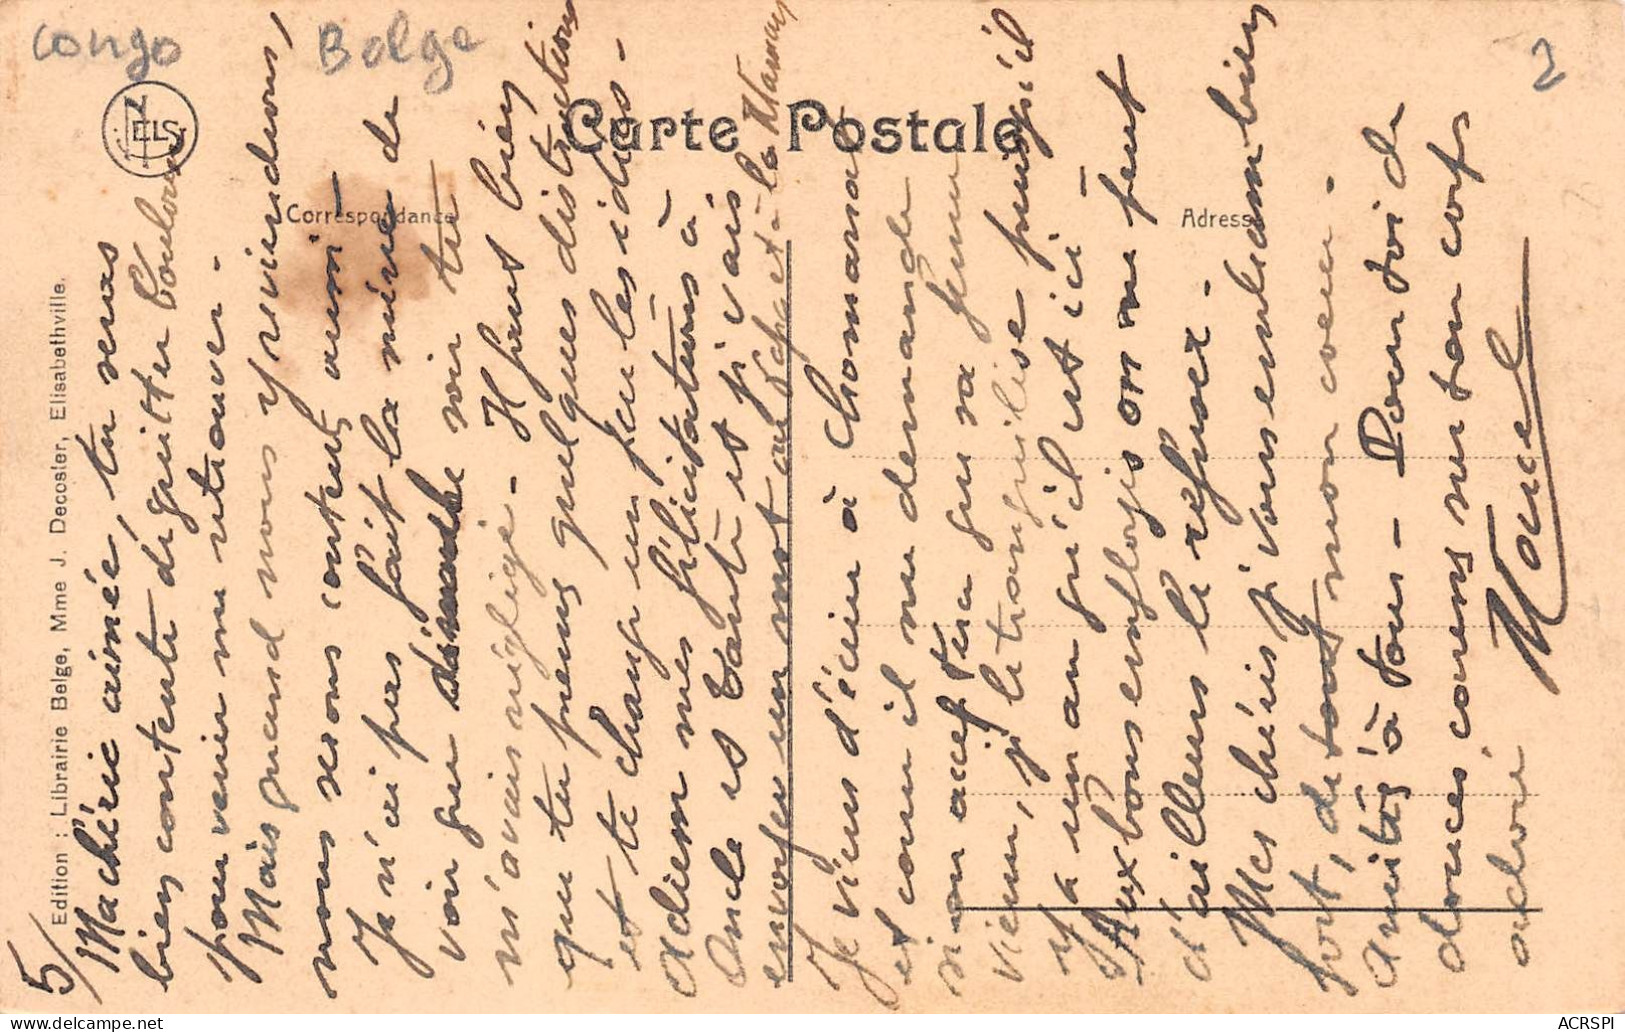 Congo Belge
2
ELS
Carte Postale
Correspondance
Adresse
Edition : Librairie Belge, Mme J. Decosler, Elisabethville.
5/
Ma chérie aimée, tu seras
bien contente de quitter
pour venir me retrouver -
Mais quand nous y reviendrons,
nous serons contents aussi -
Je n'ai pas fait la mine de
voir que tu
m'avais négligé - Il faut bien
que tu prennes quelques distractions
et te change un peu les idées -
Adiem mes félicitations à
Oncle et Tante et j'vais
envoyer un mot au et à la Maman
Je viens d'écrire à Chomana
et comm il me demande
si on acceptera que sa femme
vienne, j'le tranquillise puisqu'il
y a un an qu'il est ici -
Aux bons employés on ne peut
d'ailleurs le refuser -
Mes chéris j'vous embrasse bien
fort, de tout mon coeur -
Amitiés à tous - Pour toi de
douces caresses sur ton corps
adoré
Marcel
ACRSPI